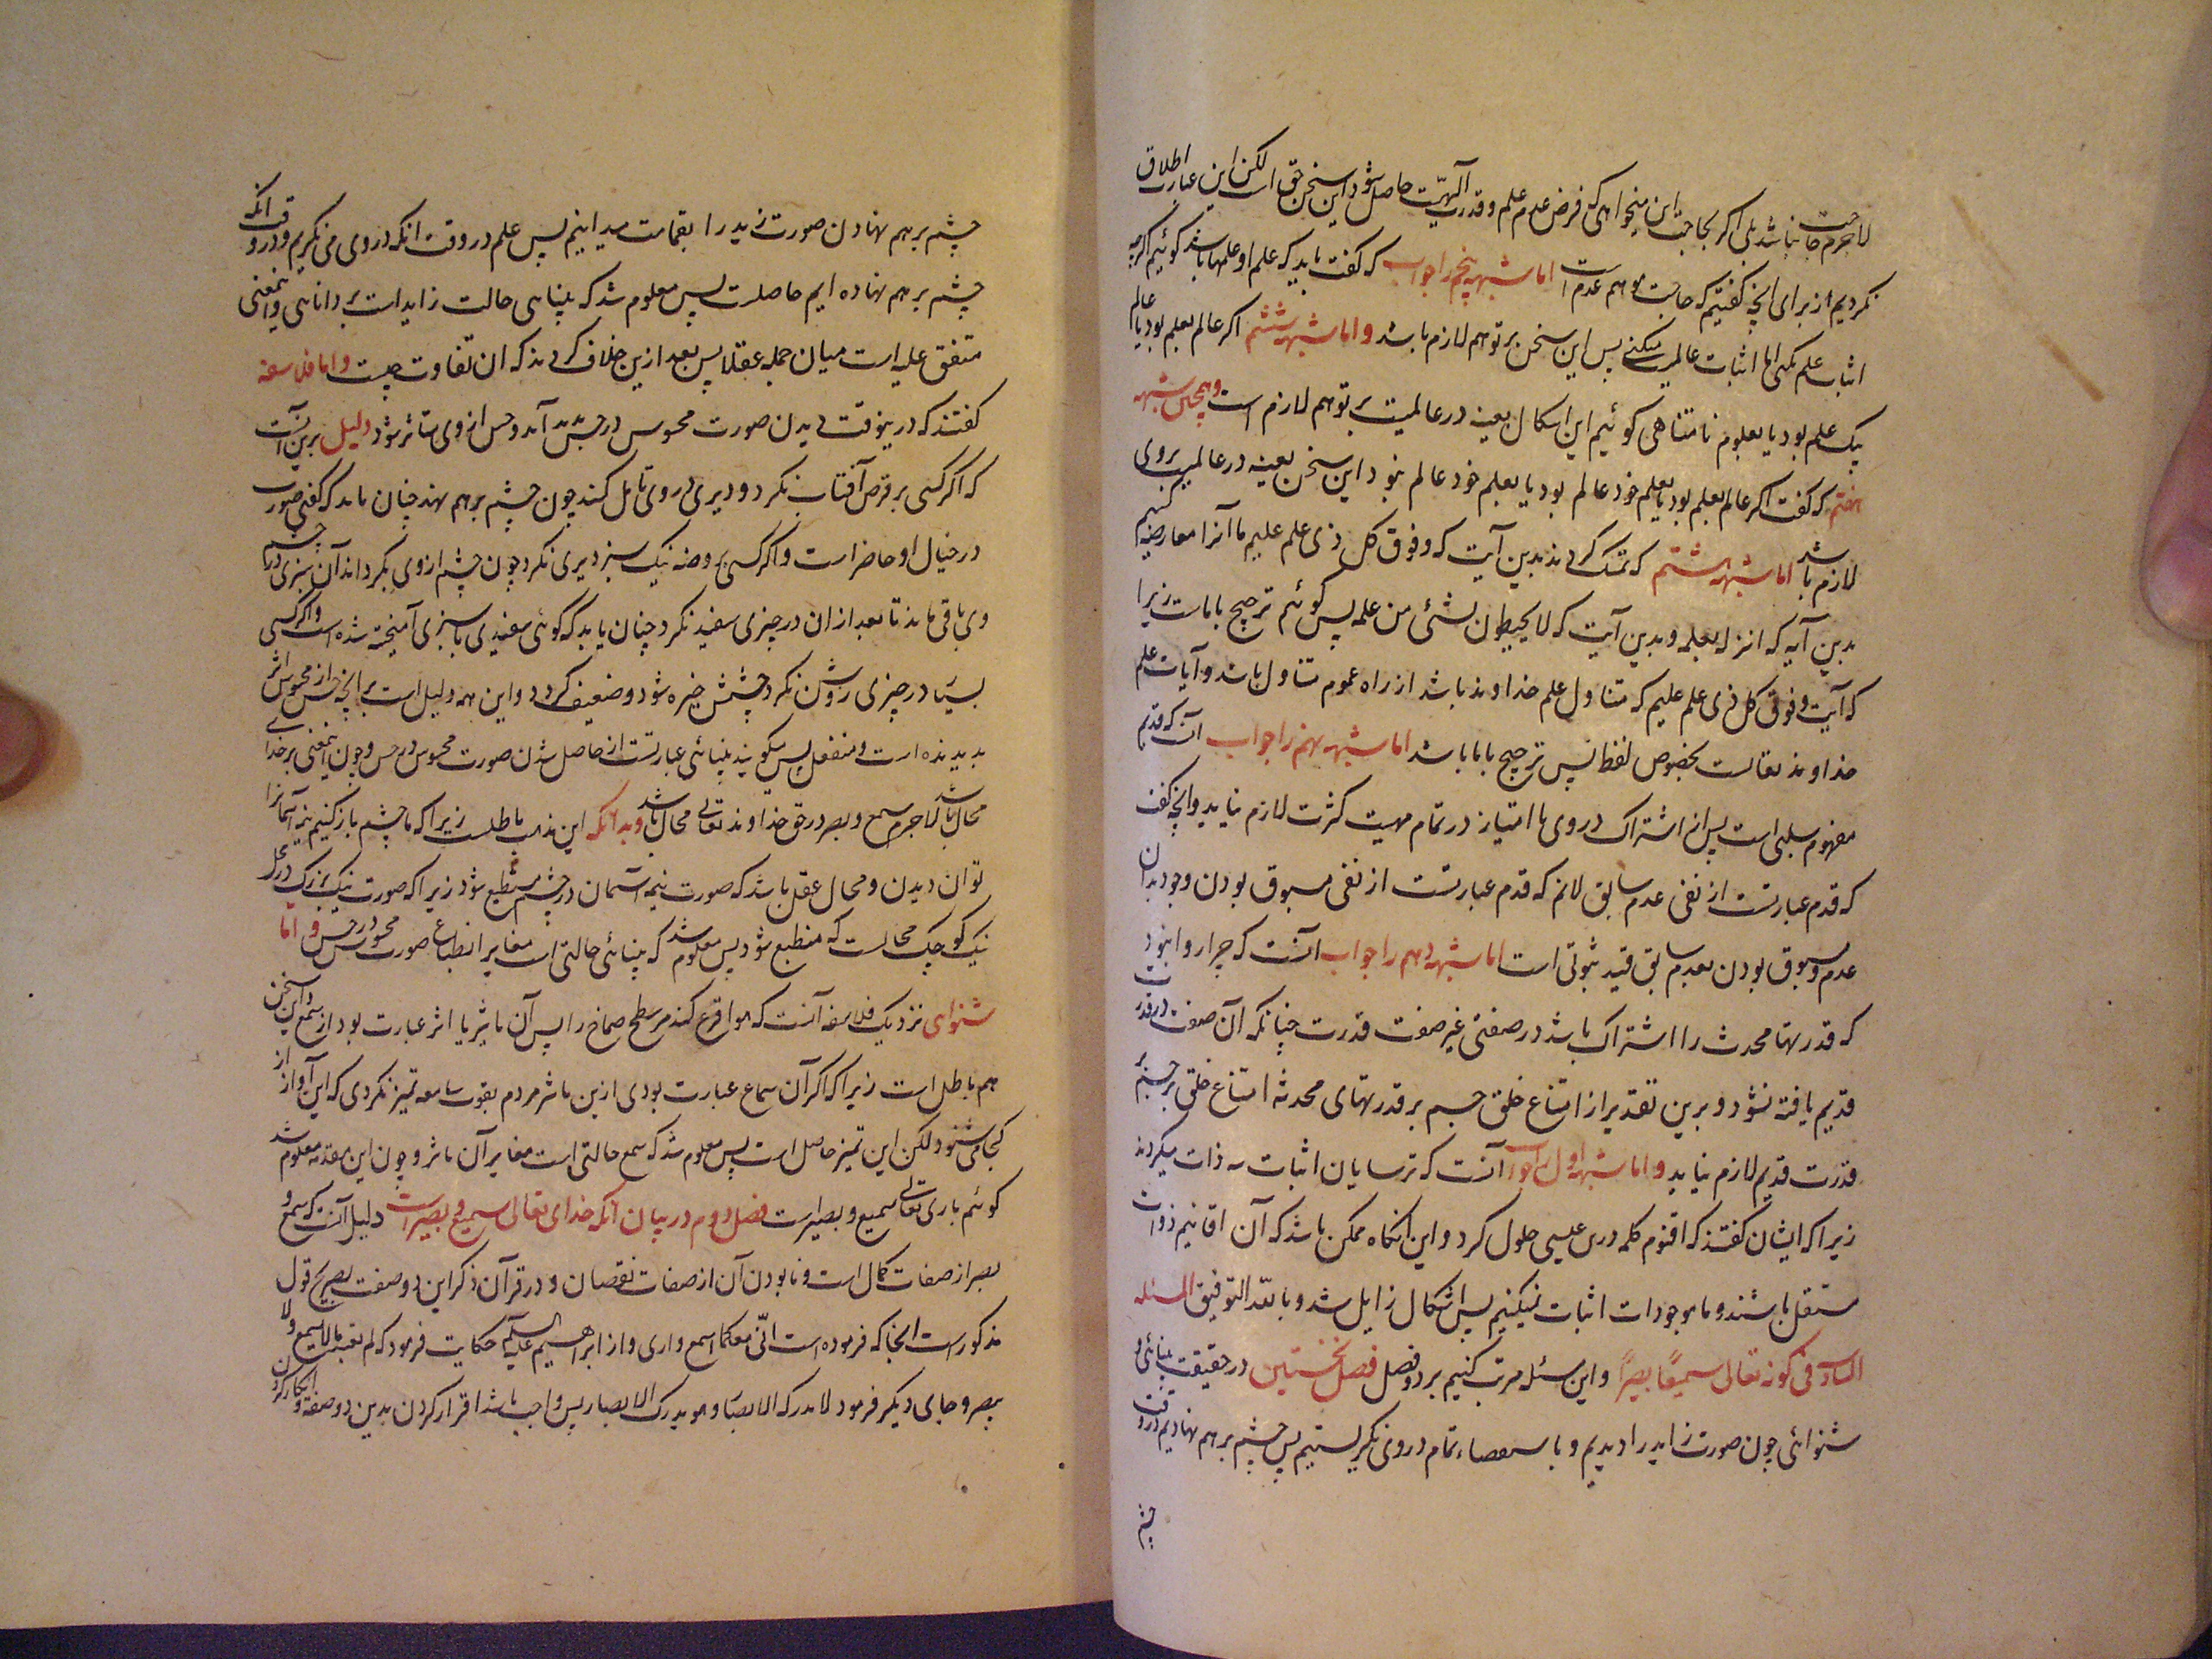 لاجرم حاجت نباشد بلی اکر بحاجت این میخواهی که فرض عدم علم و قدرت الهیت حاصل شود این سخن حق است لکن این عبارت اطلاق
نکردیم از برای انچه کفتیم که حاجت موهم عدم است اما شبهه پنجم را جواب که کفت باید که علم او علمها باشد کوئیم اکرچه
اثبات علم نمکنی اما اثبات عالمیت میکنی پس این سخن بر تو هم لازم باشد و اما شبهه ششم اکر عالم بعلم بود یا عالم
بیک علم بود یا بعلوم نامتناهی کوئیم این اشکال بعینه در عالمیت بر تو هم لازم است و همچنین شبهه
هفتم که کفت اکر عالم بعلم بود یا بعلم خود عالم بود یا بعلم خود عالم نبود این سخن بعینه در عالمیت بروی
لازم باشد اما شبهه هشتم که تمسک کردند بدین آیت که و فوق کل ذی علم علیم ما آنرا معارضه کنیم
بدین آیه که انزله بعلمه و بدین آیت که لا یحیطون بشئی من علمه پس کوئیم ترجیح با ماست زیرا
که آیت و فوق کل ذی علم علیم که متناول علم خداوند باشد از راه عموم متناول باشد و آیات علم
خداوند تعالست بخصوص لفظ پس ترجیح با ما باشد اما شبهه نهم را جواب آن که قدیم
مفهوم سلبی است پس از اشتراک در وی با امتیاز در تمام مهیت کثرت لازم نیاید و انچه کفت
که قدم عبارتست از نفی عدم سابق لانم که قدم عبارتست از نفی مسبوق بودن وجود بدان
عدم و مسبوق بودن بعدم سابق قید ثبوتی است اما شبهه دهم را جواب آنست که چرا روا نبود
که قدرتها محدث را اشتراک باشد در صفتی غیر صفت قدرت چنانکه آن صفت در قدرت
قدیم یافته نشود و برین تقدیر از امتناع خلق جسم بر قدرتهای محدثه امتناع خلق جسم بر
قدرت قدیم لازم نیاید و اما شبهه اول را جواب آنست که ترسایان اثبات سه ذات میکردند
زیرا که ایشان کفتند که اقنوم کلمه در عیسی حلول کرد و این انکاه ممکن باشد که آن اقانیم ذوات
مستقل باشند و ما موجودات اثبات نمیکنیم پس اشکال زایل شد و بالله التوفیق المسئله
السادسه فی کونه تعالی سمیعًا بصیرًا و این مسئله مرتب کنیم بر دو فصل فصل نخستین در حقیقت بینائی و
شنوائی چون صورت زید را دیدیم و باستقصاء تمام در وی نکریستیم پس چشم بر هم نهادیم در وقت
چشم
چشم بر هم نهادن صورت زید را بتمامت میدانیم پس علم در وقت انکه در وی می نکریم و در وقت انکه
چشم بر هم نهاده ایم حاصلست پس معلوم شد که بینایی حالت زاید است بر دانایی و اینمعنی
متفق علیه است میان جمله عقلا پس بعد ازین خلاف کردند که ان تفاوت چیست و اما فلاسفه
کفتند که درینوقت دیدن صورت محسوس در حس آید و حس از وی متاثر شود دلیل برین آنست
که اکر کسی بر قرص آفتاب نکرد و دیری در وی تامل کند چون چشم بر هم نهد چنان ماند که کفتی صورت
در خیال او حاضر است و اکر کسی بر وضه نیک سبز دیری نکرد چون چشم از وی بکرداند آن سبزی در چشم
وی باقی ماند تا بعد از ان در چیزی سفید نکرد چنان یابد که کوئی سفیدی با سبزی آمیخته شده است و اکر کسی
بسیار در چیزی روشن نکرد چشمش خیره شود و ضعیف کردد و این همه دلیل است بر انچه حس از محسوس اثر
پذیرنده است و منفعل پس میکویند بینائی عبارتست از حاصل شدن صورت محسوس در حس و چون اینمعنی بر خدای
محال باشد لاجرم سمع و بصر در حق خداوند تعالی محال باشد و بدانکه این مذهب باطلست زیرا که ما چشم باز کنیم نیمه آسمانرا
توان دیدن و محال عقل باشد که صورت نیمه آسمان در چشم منطبع شود زیرا که صورت نیک بزرک در محل
نیک کوچک محالست که منطبع شود پس معلوم شد که بینائی حالتی است مغایر انطباع صورت محسوس در حس و اما
شنوای نزدیک فلاسفه آنست که هوا قرع کند مر سطح صماخ را پس آن تاثیر یا اثر عبارت بود از سمع و این سخن
هم باطل است زیرا که اکر آن سماع عبارت بودی ازین تاثر مردم بقوت سامعه تمیز نکردی که این آواز از
کجا می شنود لکن این تمیز حاصل است پس معلوم شد که سمع حالتی است مغایر آن تاثر و چون این مقدمه معلوم شد
کوئیم باری تعالی سمیع و بصیر است فصل دوم در بیان آنکه خدای تعالی سمیع و بصیر است دلیل آنست که سمع و
بصر از صفات کمال است و نابودن آن از صفات نقصان و در قرآن ذکر این دو صفت بصریح قول
مذکور است انجا که فرموده است انّنی معکما اسمع واری و از ابراهیم علیه السلام حکایت فرمود که لم تعبد ما لا یسمع ولا
یبصر و جای دیکر فرمود لا تدرکه الابصار و هو یدرک الابصار پس واجب باشد اقرار کردن بدین دو صفت و انکار کردن